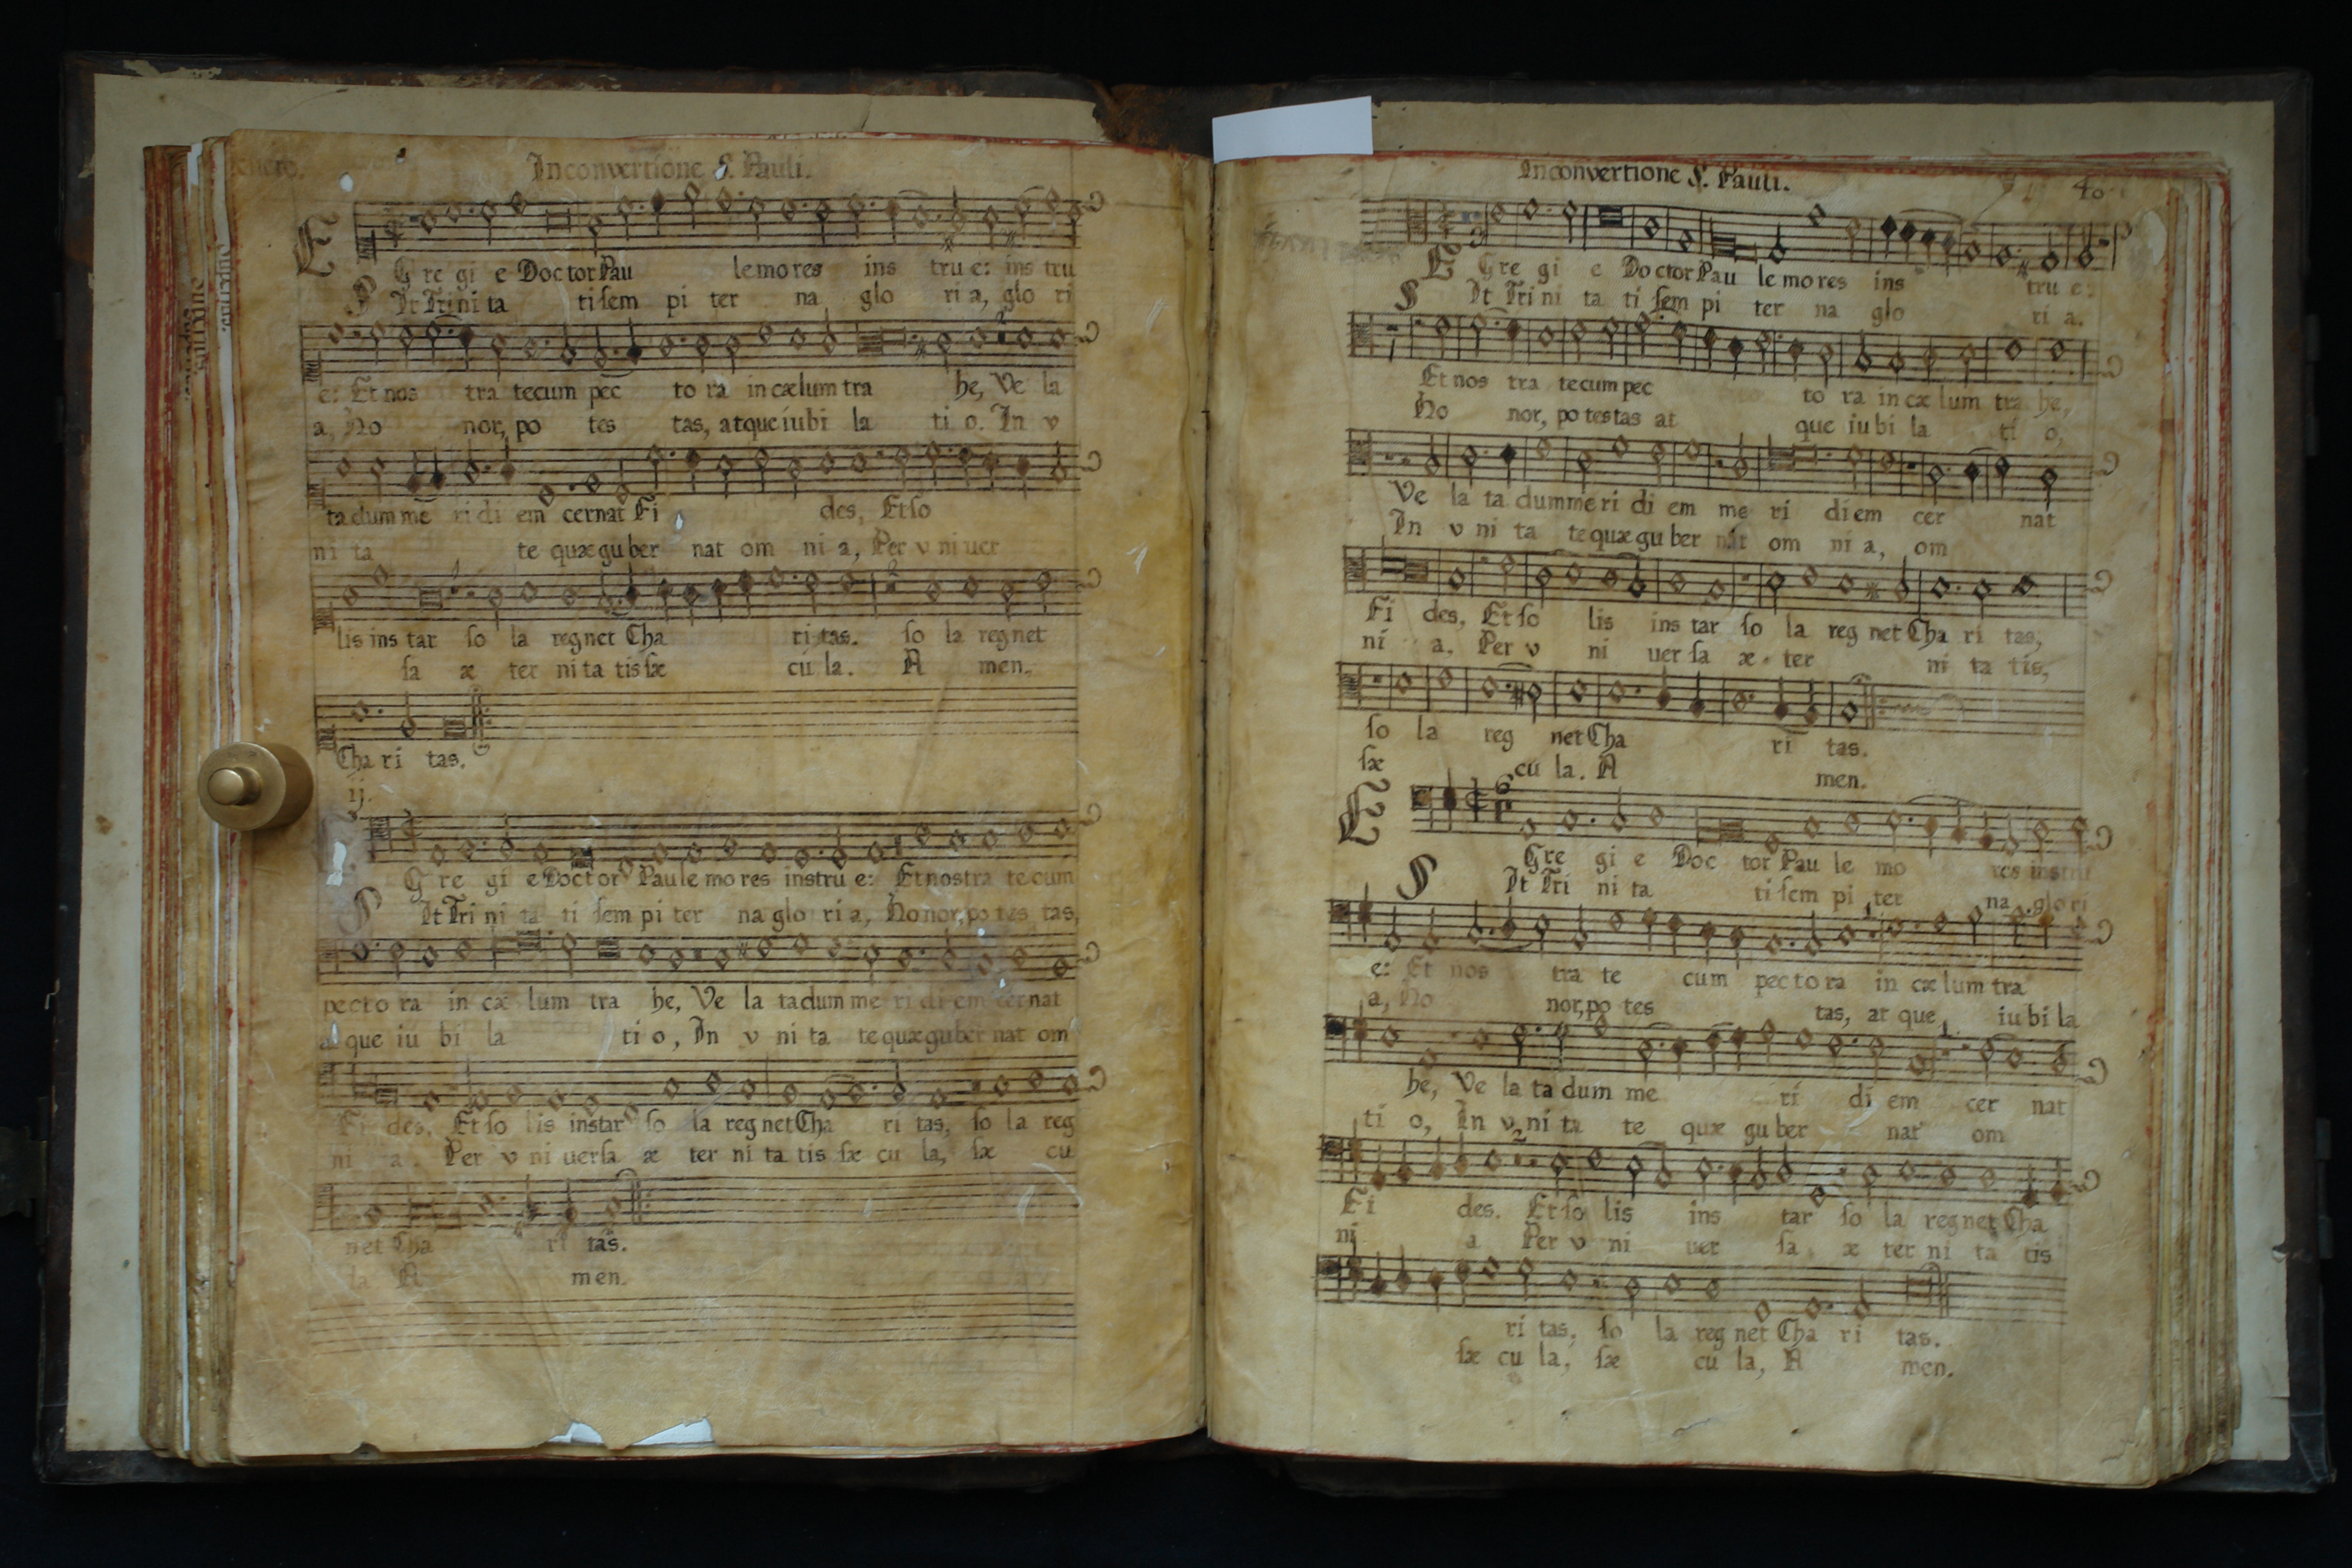 Inconvertione S. Pauli.
E Gre gi e Doctor Pau le mo res ins tru e: ins tru
S It Tri ni ta ti sem pi ter na glo ri a, glo ri
e: Et nos tra tecum pec to ra in cælum tra he, Ve la
a, Ho nor, po tes tas, atque iubi la ti o. In v
ta dum me ri di em cernat Fi des, Et so
ni ta te quæ gu ber nat om ni a, Per v ni uer
lis ins tar so la regnet Cha ri tas. so la regnet
sa æ ter ni ta tis sæ cu la. A men.
Cha ri tas.
ij.
G re gi e Doctor Paule mo res instru e: Et nostra tecum
S It Tri ni ta ti sem pi ter na glo ri a, Honor, po tes tas,
pecto ra in cæ lum tra he, Ve la ta dum me ri di em cernat
at que iu bi la ti o, In v ni ta te quæ guber nat om
Fi des. Et so lis instar so la regnet Cha ri tas, so la reg
ni a. Per v ni uersa æ ter ni ta tis sæ cu la, sæ cu
net Cha ri tas.
la. A men.
Inconvertione S. Pauli.
40
E Gre gi e Doctor Pau le mo res ins tru e:
S It Tri ni ta ti sem pi ter na glo ri a.
Et nos tra tecum pec to ra in cæ lum tra he,
Ho nor, po testas at que iu bi la ti o,
Ve la ta dum me ri di em me ri diem cer nat
In v ni ta te quæ gu ber nat om ni a, om
Fi des, Et so lis ins tar so la reg net Cha ri tas,
ni a. Per v ni uer sa æ ter ni ta tis,
so la reg net Cha ri tas.
sæ cu la. A men.
E Gre gi e Doc tor Pau le mo res instru
S It Tri ni ta ti sem pi ter na glo ri
e: Et nos tra te cum pecto ra in cæ lum tra
a, Ho nor, po tes tas, at que iu bi la
he, Ve la ta dum me ri di em cer nat
ti o, In v ni ta te quæ gu ber nat om
Fi des. Et so lis ins tar so la regnet Cha
ni a Per v ni uer sa æ ter ni ta tis
ri tas, so la reg net Cha ri tas.
sæ cu la, sæ cu la, A men.